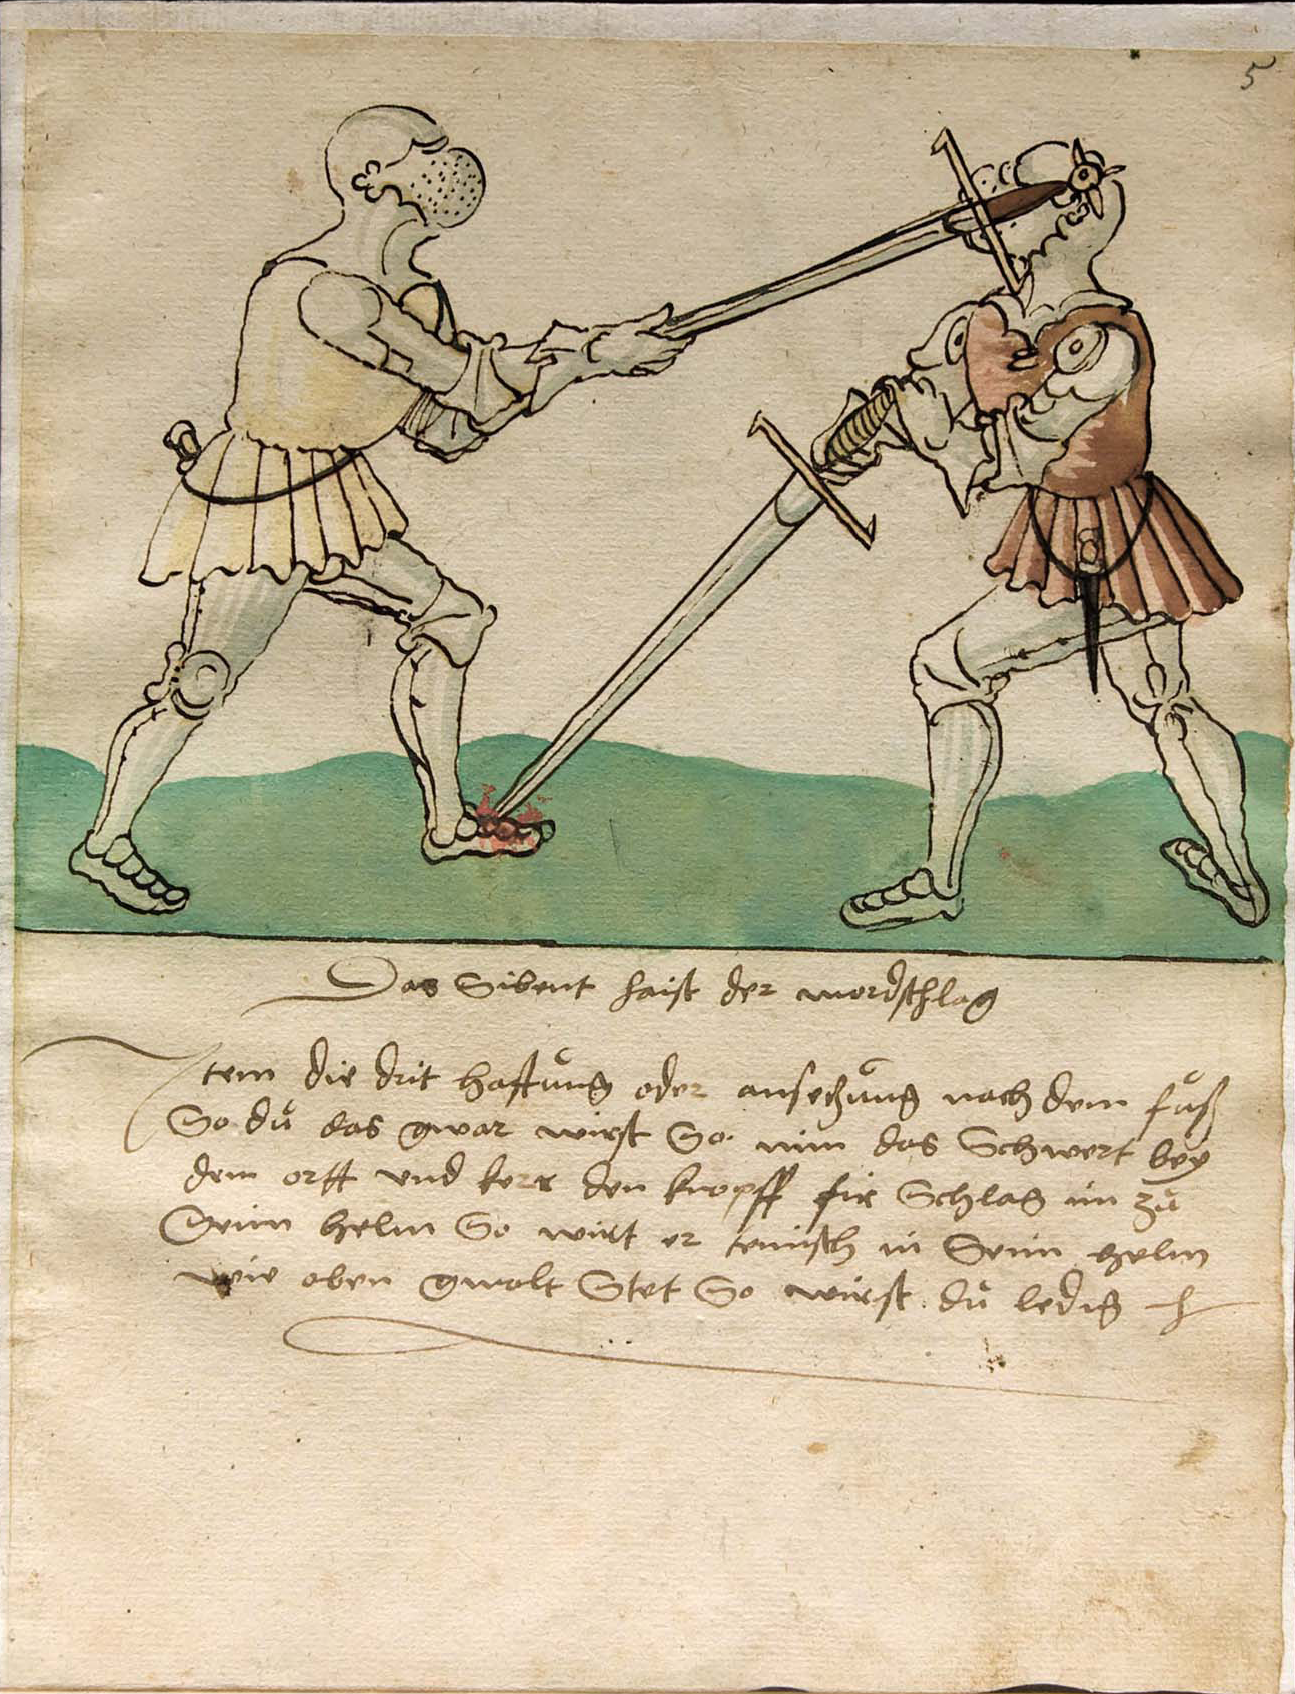 5
Das Sibent haist der mordschlag
Item die drit haftung oder anseczung nach dem fuͦß
So du das gwar wirst So nim das Schwert bey
dem ortt und ker den knopff fir Schlag im zu
Seim helm So wirt er temisch in Seim helm
wie oben gmalt Stet So wirst du ledig